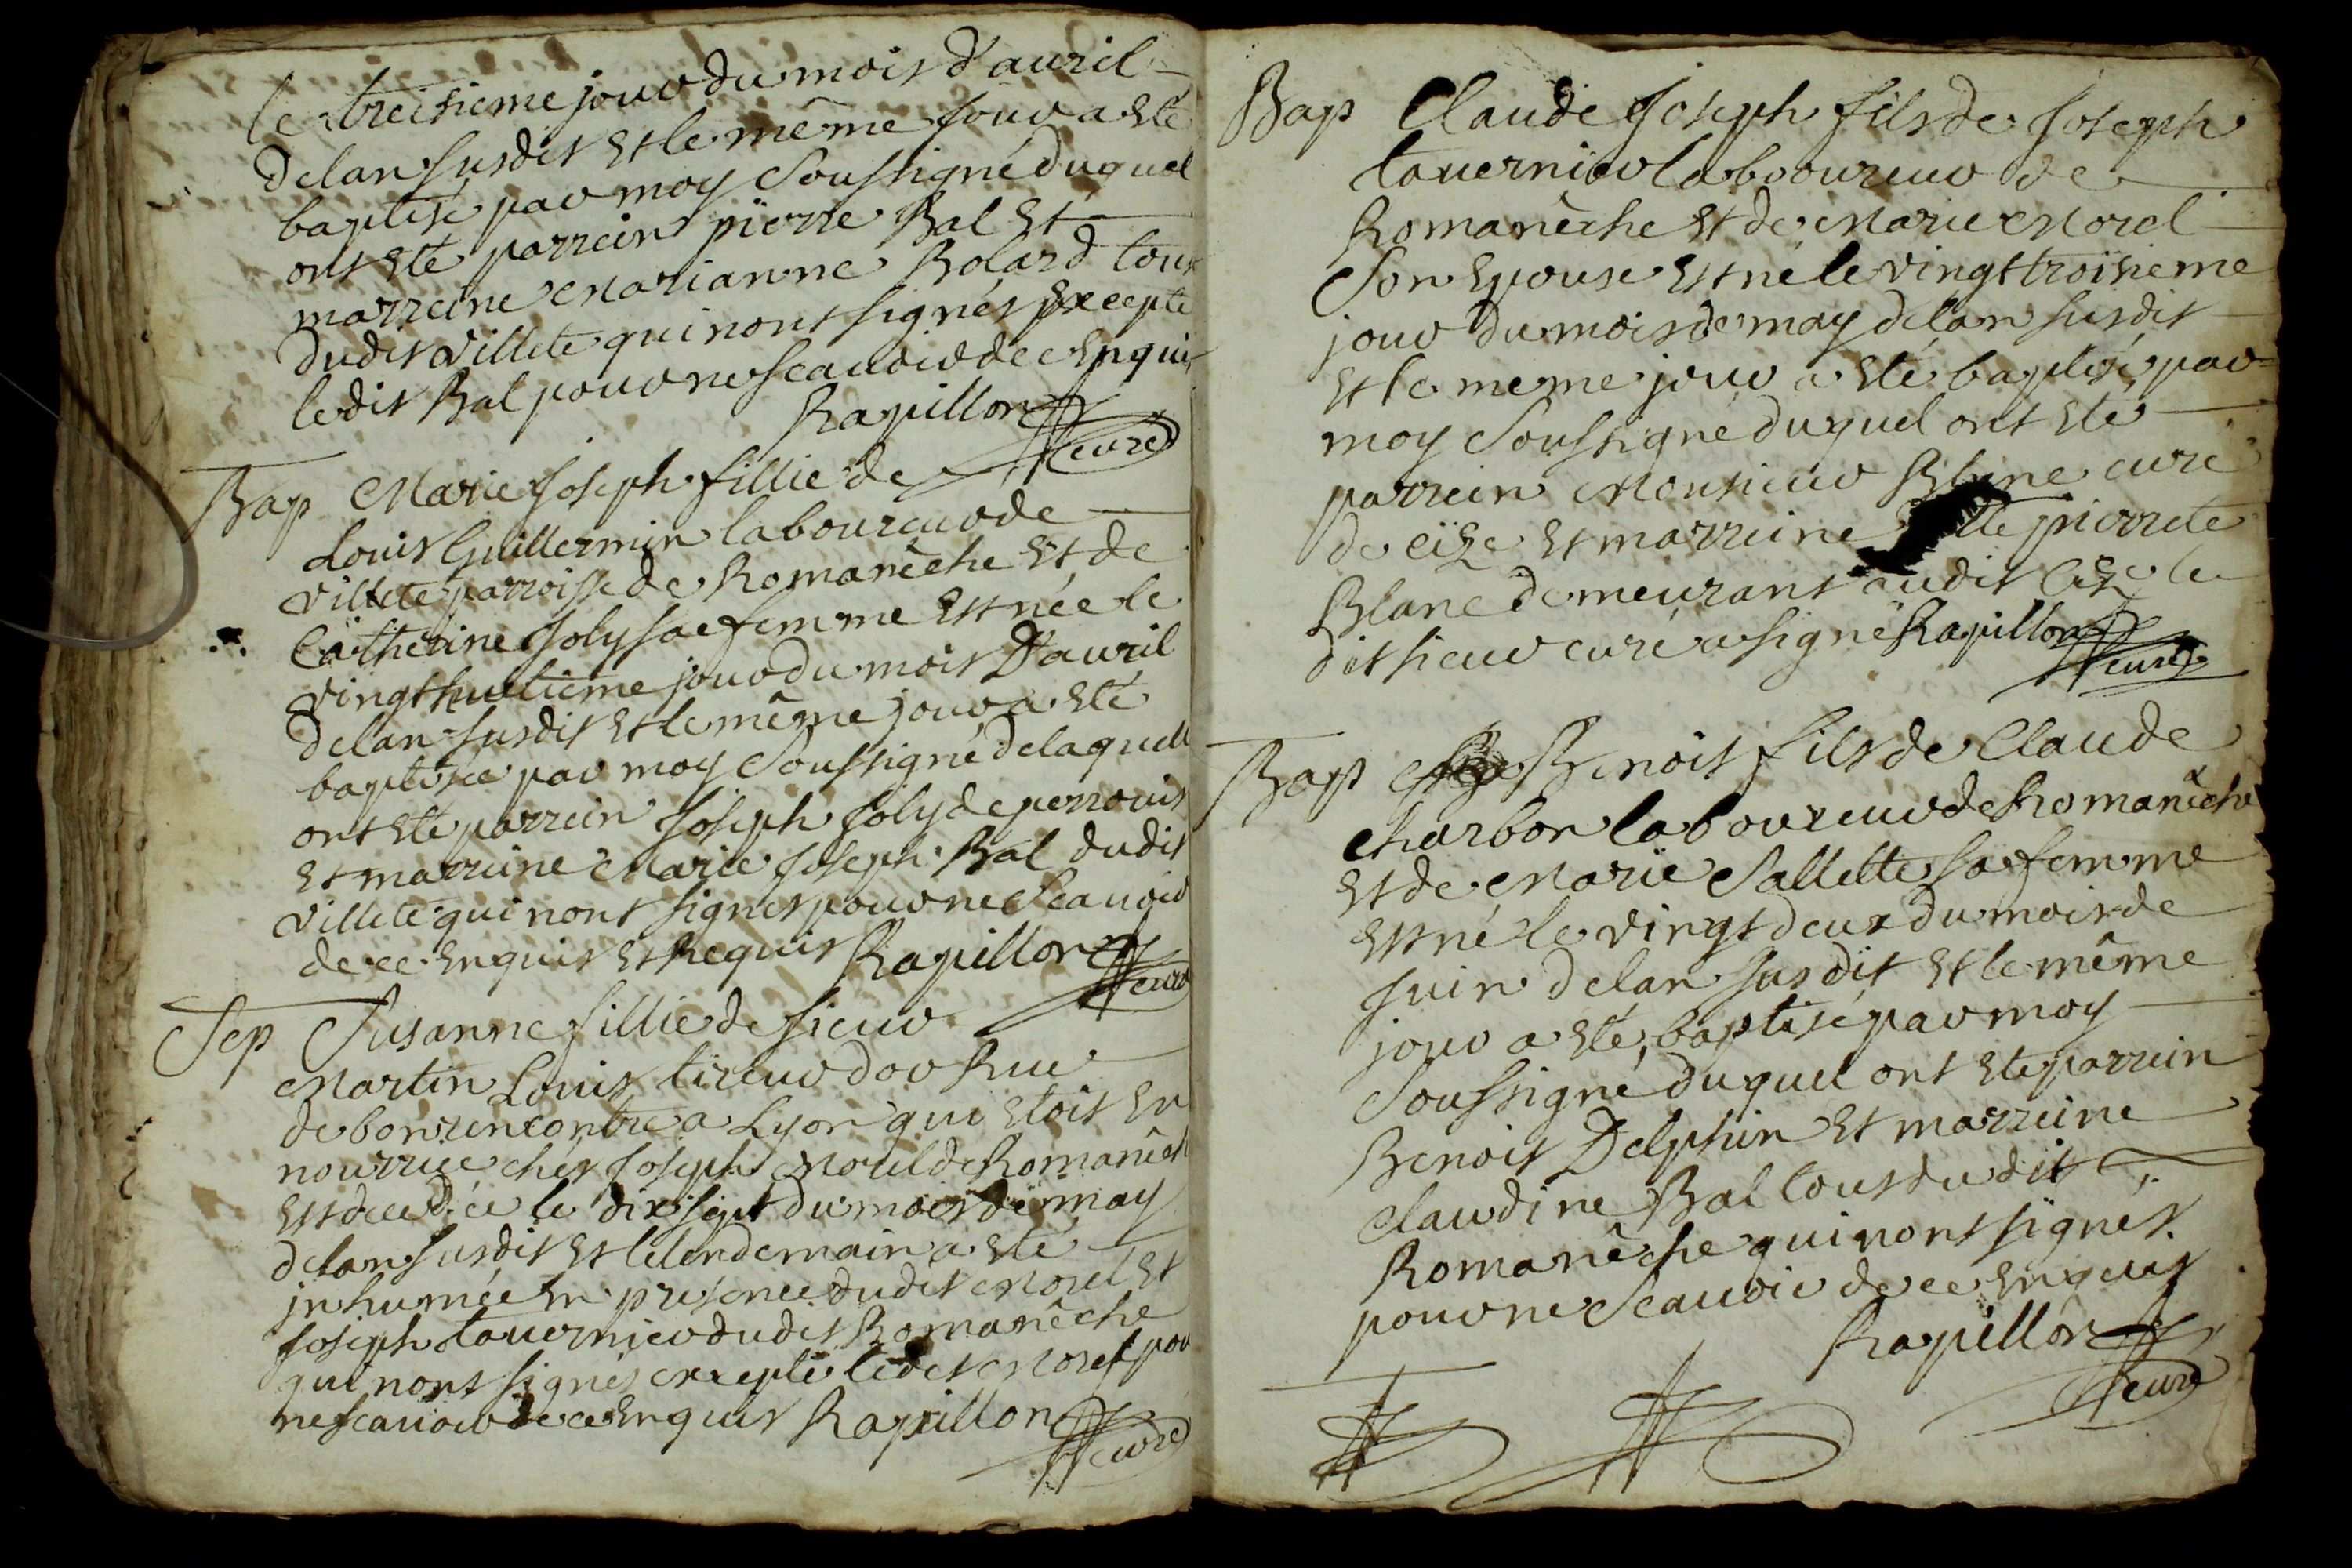 le treisieme jour du mois d'auril
delan susdit Et le même jour a Eté
baptisé par moy Soussigné duquel
ont Eté parrein pierre Bal Et
marreine Marianne Bolard tous
dudit Villete qui nont signés Excepté
ledit Bal pour ne scauoir de ce Enquis
Rapillon curé
Bap Marie Joseph fillie de
Louis Guillermin laboureur de
Villete parroisse de Romanêche Et de
Catherine Joly sa femme Est née le
vingt huitieme jour du mois D'auril
delan susdit Et le même jour a Eté
baptisée par moy Soussigné delaquelle
ont Eté parrein Joseph Joly de
Et marreine Marie Joseph Bal dudit
Villete qui nont signés pour ne Scauoir
de ce Enquis Et Requis Rapillon curé
Sep Susanne fillie de sieur
Martin Louis tireur dor Rue
de bon rencontre a Lyon qui Etoit En
nourrice chés Joseph Morel de Romanêche
Est decedée le dix sept du mois de may
delan susdit Et le lendemain a Eté
jnhumée En présence dudit Morel Et
Joseph tauernier dudit Romanêche
qui nont signés excepté ledit Morel pour
ne scauoir de ce Enquis Rapillon curé
Bap Claude Joseph fils de Joseph
tauernier laboureur de
Romanêche Et de Marie Morel
Son Epouse Est né le vingt troisieme
jour du mois de may delan susdit
Et le meme jour a Eté baptisé par
moy Soussigné duquel ont Eté
parrein Monsieur Blanc curé
de cize Et marreine pierrete
Blanc demeurant audit Cize le
dit sieur curé a signé Rapillon curé
Bap Benoit fils de Claude
Charbon laboureur de Romanêche
Et de Marie Sallette sa femme
Est né le vingt deux du mois de
Juin delan susdit Et le même
jour a Eté baptisé par moy
Soussigné duquel ont Eté parrein
Benoit Delphin Et marreine
Claudine Bal tous dudit
Romanêche qui nont signés
pour ne Scauoir de ce Enquis
Rapillon
curé